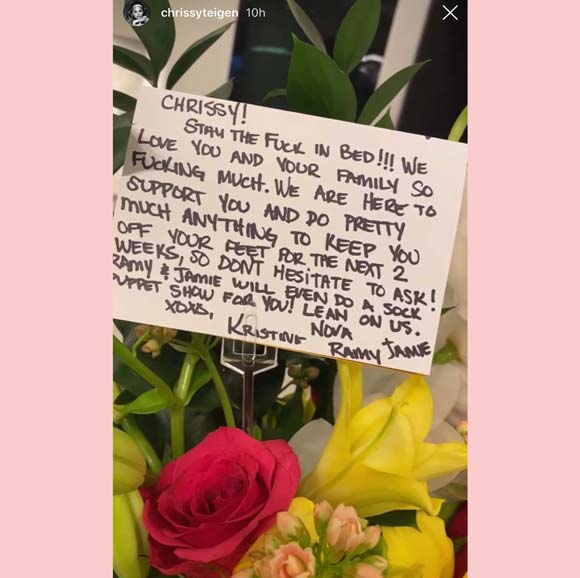 chrissyteigen 10h
CHRISSY!
STAY THE FUCK IN BED!!! WE
LOVE YOU AND YOUR FAMILY SO
FUCKING MUCH. WE ARE HERE TO
SUPPORT YOU AND DO PRETTY
MUCH ANYTHING TO KEEP YOU
OFF YOUR FEET FOR THE NEXT 2
WEEKS, SO DONT HESITATE TO ASK!
RAMY & JAMIE WILL EVEN DO A SOCK
PUPPET SHOW FOR YOU! LEAN ON US.
XOXO, NOVA
KRISTINE RAMY JAMIE